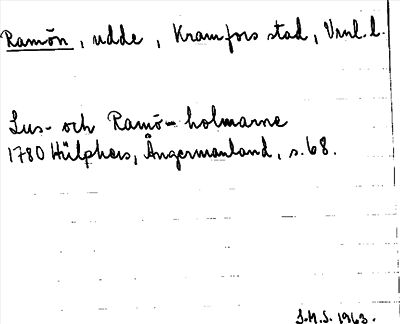 Ramön, udde, Kramfors stad, Vnl.l.
Lus- och Ramö-holmarne
1780 Hülphers, Ångermanland, s. 68.
S.M.S. 1963.